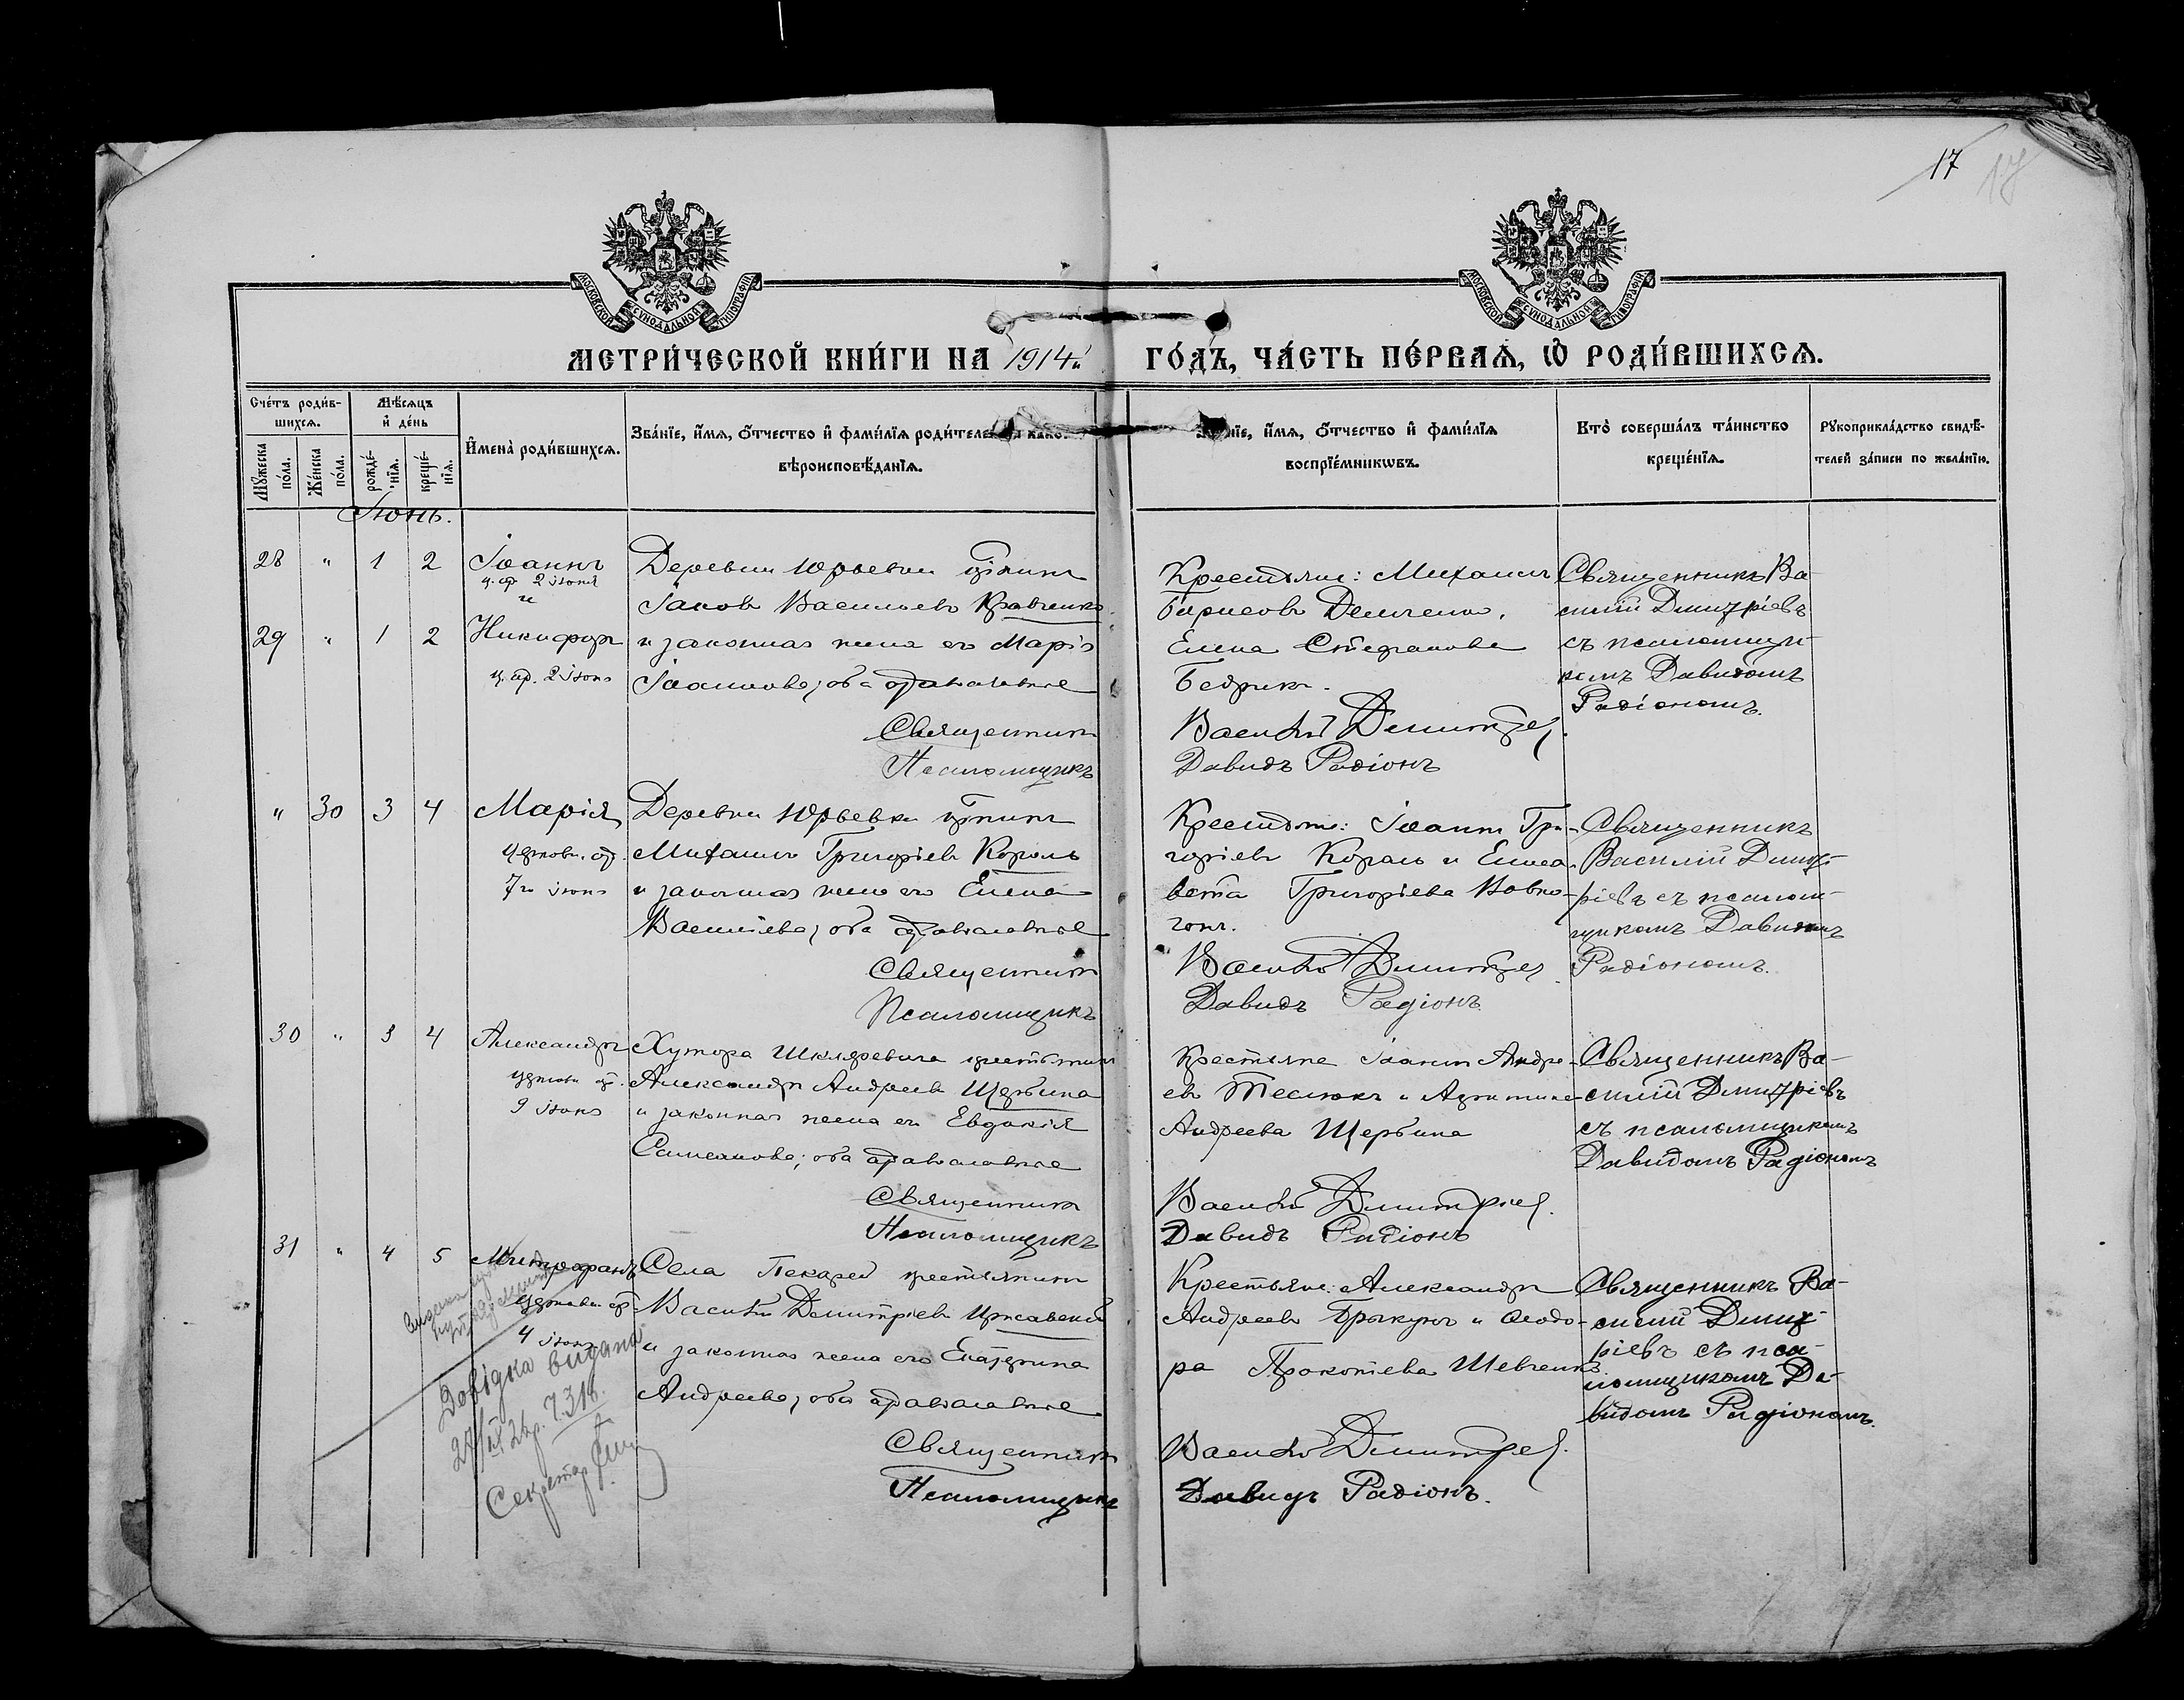 17
17
МОСКОВСКОЙ СѴНОДАЛЬНОЙ ТИПОГРАФІИ
МОСКОВСКОЙ СѴНОДАЛЬНОЙ ТИПОГРАФІИ
МЕТРИ́ЧЕСКОЙ КНИ́ГИ НА 1914й ГО́ДЪ, ЧА́СТЬ ПЕ́РВАѦ, Ѡ РОДИ́ВШИХСѦ.
Сче́тъ роди́в-
шихсѧ.
Мꙋ́жеска по́ла.
Же́нска по́ла.
Мѣ́сѧцъ
и де́нь
рожде́-
нїѧ.
креще́-
нїѧ.
Имена̀ роди́вшихсѧ.
Зва́нїе, и́мѧ, о́тчество и фами́лїѧ роди́телей
вѣроисповѣ́данїѧ.
и́мѧ, о́тчество и фами́лїѧ
воспрїе́мникѡвъ.
Кто̀ соверша́лъ та́инство
креще́нїѧ.
Рꙋкоприкла́дство свидѣ́-
телей за́писи по жела́нїю.
Іюнь.
28 " 1 2 Іоаннъ
2 іюня
и
29 " 1 2 Никифоръ
2 іюня
Деревни Юрьевки
Іаковъ Васильевъ Кравченко
и законная жена его Марія
Іоаннова; оба православные
Священникъ
Псаломщикъ
Крестьяне: Михаилъ
Борисовъ Демченко,
Елена Стефанова
Бедрикъ.
Василій Димитріев
Давидъ Радіонъ
Священникъ Ва-
силій Димитріевъ
съ псаломщи-
комъ Давидомъ
Радіономъ.
" 30 3 4 Марія
церковн. ор.
7го іюня
Деревни Юрьевки
Михаилъ Григоріевъ Король
и законная жена его Елена
Василіева; оба православные
Священникъ
Псаломщикъ
Крестьяне: Іоаннъ Гри-
горіевъ Король и Елиса-
вета Григоріева Вовко-
гонъ.
Василій Димитріев
Давидъ Радіонъ
Священникъ
Василій Димит-
ріевъ съ псалом-
щикомъ Давидомъ
Радіономъ.
30 " 3 4 Александръ
церковн. ор.
9 іюня
Хутора Шкляревича крестьянинъ
Александръ Андреевъ Щербина
и законная жена его Евдокія
Симеонова; оба православные
Священникъ
Псаломщикъ
Крестьяне Іоаннъ Андре-
евъ Теслюкъ и
Андреева Щербина
Василій Димитріев.
Давидъ Радіонъ
Священникъ Ва-
силій Димитріевъ
съ псаломщикомъ
Давидомъ Радіономъ
31 " 4 5 Митрофанъ
церковн. ор.
4 іюня
Довідка видана
Секретар
Села Пекарей крестьянинъ
Василій Димитріевъ Иржавскій
и законная жена его Екатерина
Андреева; оба православные
Священникъ
Псаломщикъ
Крестьяне: Александръ
Андреевъ и Ѳеодо-
ра Прокопіева Шевченко
Василій Димитріев.
Давидъ Радіонъ.
Священникъ Ва-
силій Димит-
ріевъ съ пса-
ломщикомъ Да-
видомъ Радіономъ.